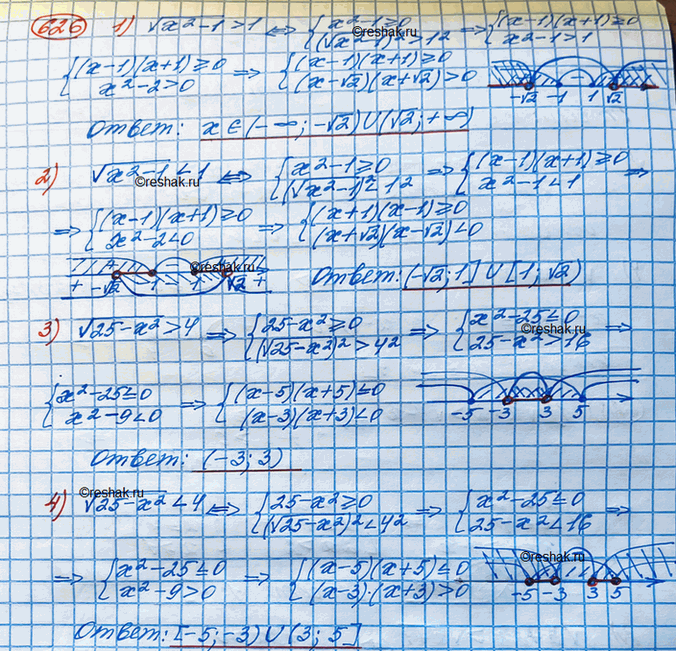 626 1) √x²-1 > 1 ⟺ {x²-1≥0 (√x²-1)² > 1² ⇒ {(x-1)(x+1)≥0 x²-1>1
{(x-1)(x+1)≥0 x²-2>0 ⇒ {(x-1)(x+1)≥0 (x-√2)(x+√2)>0
-√2 -1 1 √2
Ответ: x∈(-∞; -√2)∪(√2; +∞)
2) √x²-1 < 1 ⟺ {x²-1≥0 (√x²-1)² < 1² ⇒ {(x-1)(x+1)≥0 x²-1<1 ⇒
©reshak.ru
⇒ {(x-1)(x+1)≥0 x²-2<0 ⇒ {(x+1)(x-1)≥0 (x+√2)(x-√2)<0
©reshak.ru
+ -√2 -1 - 1 √2 +
Ответ: (-√2; 1]∪[1; √2)
3) √25-x² > 4 ⇒ {25-x²≥0 (√25-x²)² > 4² ⇒ {x²-25≤0 25-x²>16 ⇒
©reshak.ru
{x²-25≤0 x²-9<0 ⇒ {(x-5)(x+5)≤0 (x-3)(x+3)<0
-5 -3 3 5
Ответ: (-3; 3)
©reshak.ru
4) √25-x² < 4 ⟺ {25-x²≥0 (√25-x²)² < 4² ⇒ {x²-25≤0 25-x²<16 ⇒
©reshak.ru
⇒ {x²-25≤0 x²-9>0 ⇒ {(x-5)(x+5)≤0 (x-3)·(x+3)>0
-5 -3 3 5
Ответ: [-5; -3)∪(3; 5]